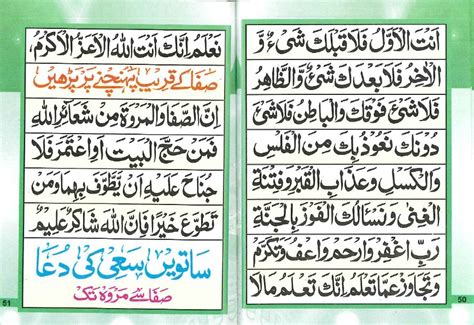 اَنْتَ الْاَوَّلُ فَلَا قَبْلَكَ شَیْءٌ وَّ
الْاٰخِرُ فَلَا بَعْدَكَ شَیْءٌ وَّالظَّاهِرُ
فَلَا شَیْءَ فَوْقَكَ وَالْبَاطِنُ فَلَا شَیْءَ
دُوْنَكَ نَعُوْذُ بِكَ مِنَ الْفَلَسِ
وَالْكَسَلِ وَعَذَابِ الْقَبْرِ وَفِتْنَةِ
الْغِنٰی وَنَسْاَلُكَ الْفَوْزَ بِالْجَنَّةِ
رَبِّ اغْفِرْ وَارْحَمْ وَاعْفُ وَتَكَرَّمْ
وَتَجَاوَزْ عَمَّا تَعْلَمُ اِنَّكَ تَعْلَمُ مَالَا
50
نَعْلَمُ اِنَّكَ اَنْتَ اللهُ الْاَعَزُّ الْاَكْرَمُ،
صفا کے قریب پہنچنے پر پڑھیں
اِنَّ الصَّفَا وَالْمَرْوَةَ مِنْ شَعَآئِرِ اللهِ
فَمَنْ حَجَّ الْبَيْتَ اَوِاعْتَمَرَ فَلَا
جُنَاحَ عَلَيْهِ اَنْ يَّطَّوَّفَ بِهِمَا وَمَنْ
تَطَوَّعَ خَيْرًا فَاِنَّ اللهَ شَاكِرٌ عَلِيْمٌ
ساتویں سعی کی دُعا
صفا سے مروہ تک
51